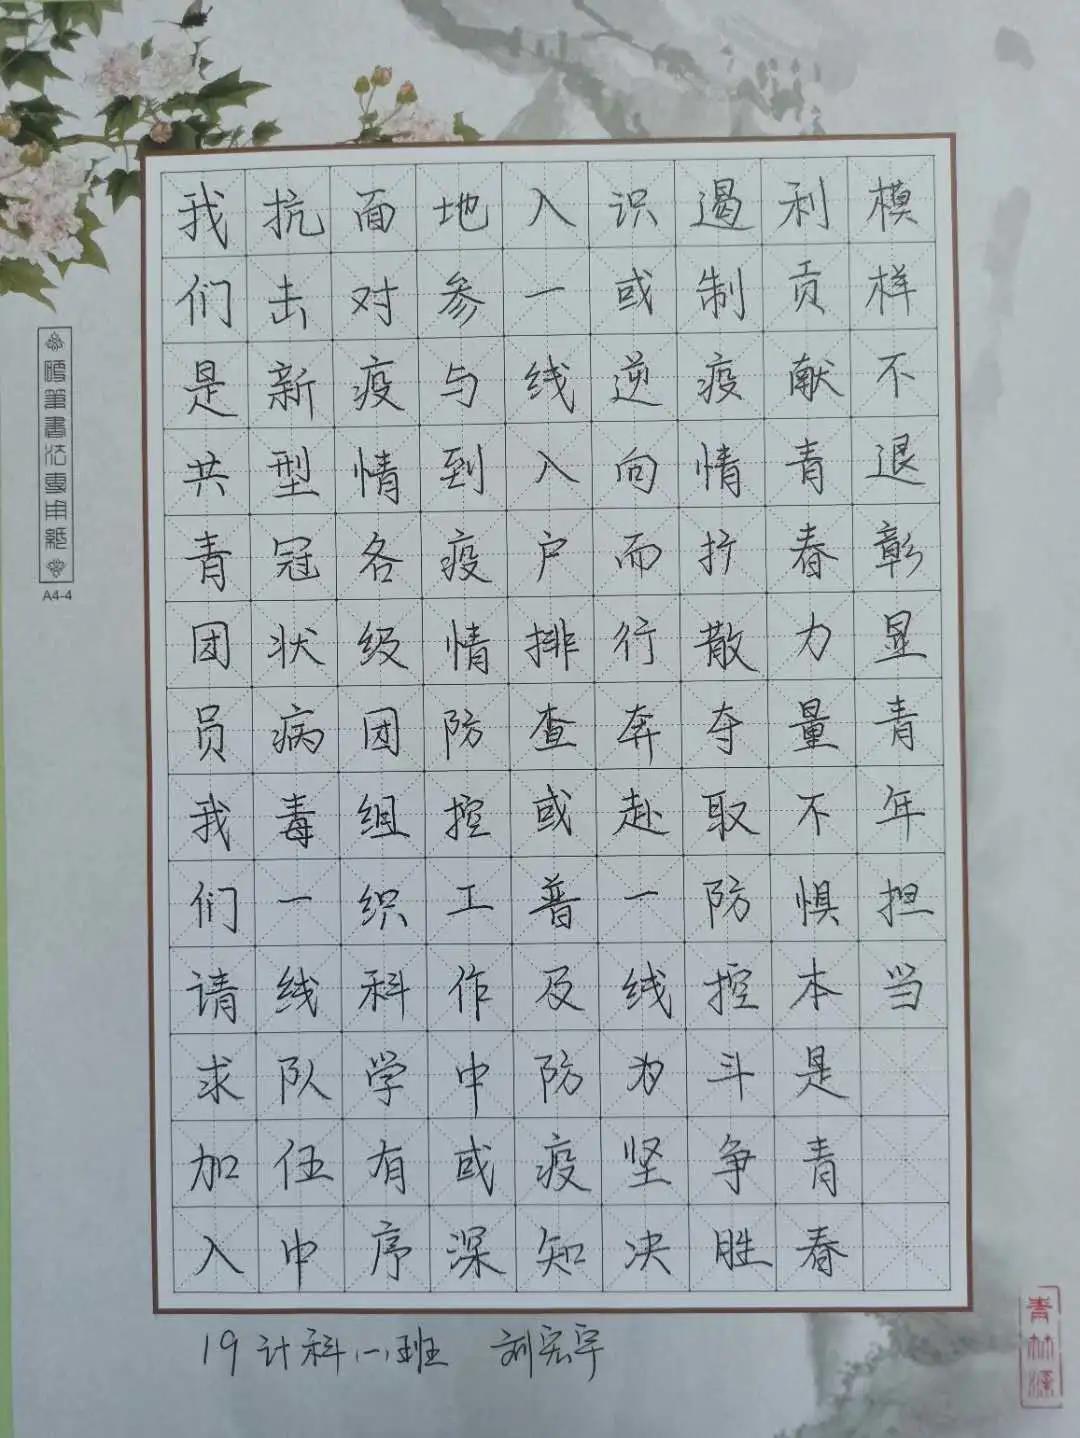 我们是共青团员我们请求加入
抗击新型冠状病毒一线队伍中
面对疫情各级团组织科学有序
地参与到疫情防控工作中或深
入一线入户排查或普及防疫知
识或逆向而行奔赴一线为坚决
遏制疫情扩散夺取防控斗争胜
利贡献青春力量不惧本是青春
模样不退彰显青年担当
19计科(一)班 刘宏宇
硬筆書法專用紙
A4-4